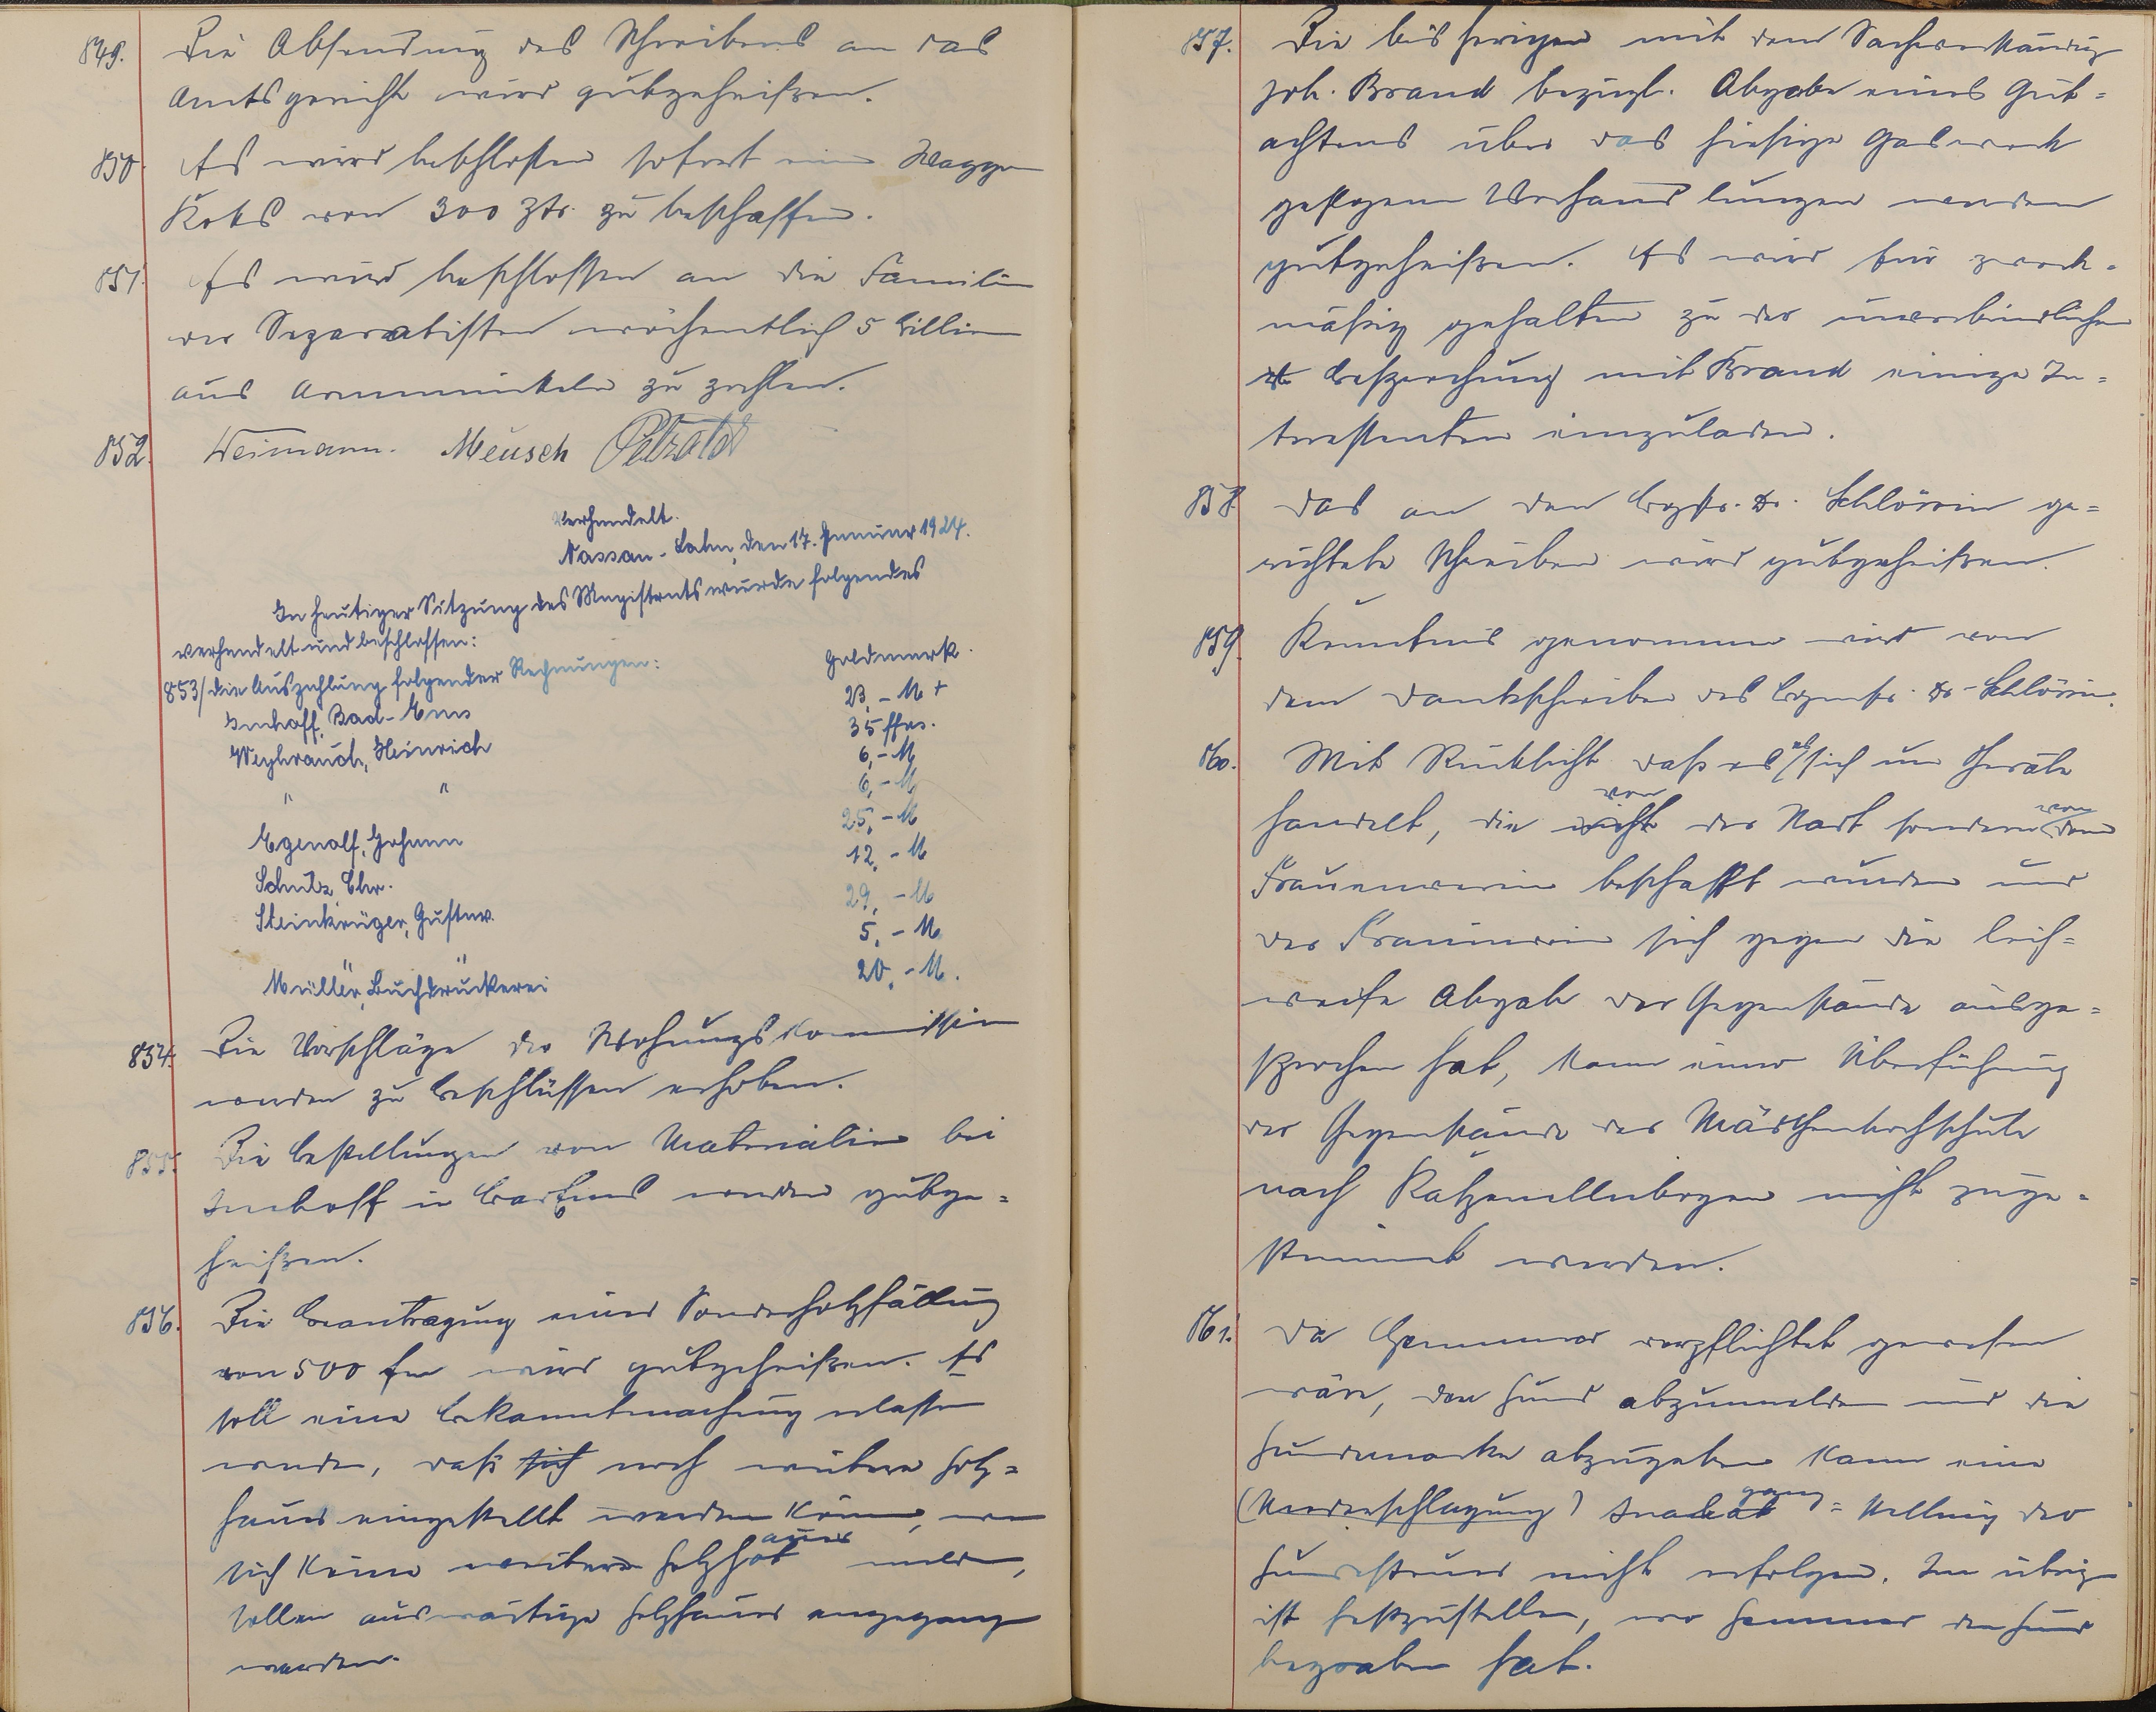 849. Die Absendung des Schreibens an das
Amtsgericht wird gutgeheißen.
850. Es wird beschlossen sofort ein Waggon
Koks von 300 Ztr. zu beschaffen.
851. Es wird beschlossen an die Familien
der Separatisten wöchentlich 5 Billion
aus Armenmitteln zu zahlen.
852. Weimann. Meusch
Verhandelt.
Nassau-Lahn, den 17. Januar 1924.
In heutiger Sitzung des Magistrats wurde folgendes
verhandelt und beschlossen:
853/ die Auszahlung folgender Rechnungen: Goldmark.
Imhoff, Bad-Ems 23,- M +
Weyhrauch, Heinrich 35 ffrs.
" " 6,- M
6,- M
Egenolf, Johann 25,- M
Schulz, Chr. 12,- M
Steinkrüger, Gustav 29,- M
" 5,- M
Müller, Buchdruckerei 20,- M.
854. Die Vorschläge der Wohnungskommission
werden zu Beschlüssen erhoben.
855. Die Bestellungen von Materialien bei
Imhoff in Bad Ems werden gutge=
heißen.
856. Die Beantragung einer Sonderholzfällung
von 500 fm wird gutgeheißen. Es
soll eine Bekanntmachung erlassen
werden, daß sich noch weitere Holz=
hauer eingestellt werden können, wenn
sich keine weiteren Holzhauer melden,
sollen auswärtige Holzhauer angegangen
werden.
857. Die bisherigen mit dem Sachverständigen
Joh. Brand bezügl. Abgabe eines Gut=
achtens über das hiesige Gaswerk
gepflogenen Verhandlungen werden
gutgeheißen. Es wird für zweck=
mäßig gehalten zu der unverbindlichen
Besprechung mit Brand einige In=
teressenten einzuladen.
858. Das an den Bgstr. Dr. Schlösin ge=
richtete Schreiben wird gutgeheißen.
859. Kenntnis genommen wird von
dem Dankschreiben des Bgmstr. Dr. Schlösin.
860. Mit Rücksicht daß es sich um Geräte
handelt, die nicht von der Stadt sondern von dem
Frauenverein beschafft wurden und
der Frauenverein sich gegen die leih=
weise Abgabe der Gegenstände ausge=
sprochen hat, kann einer Überführung
der Gegenstände der Mädchenkochschule
nach Katzenellenbogen nicht zuge=
stimmt werden.
861. Da Hemmer verpflichtet gewesen
wäre, den Hund abzumelden und die
Hundemarke abzugeben kann eine
(Niederschlagung) =stellung der
Hundesteuer nicht erfolgen. Im übrigen
ist festzustellen, wo Hemmer den Hund
begraben hat.